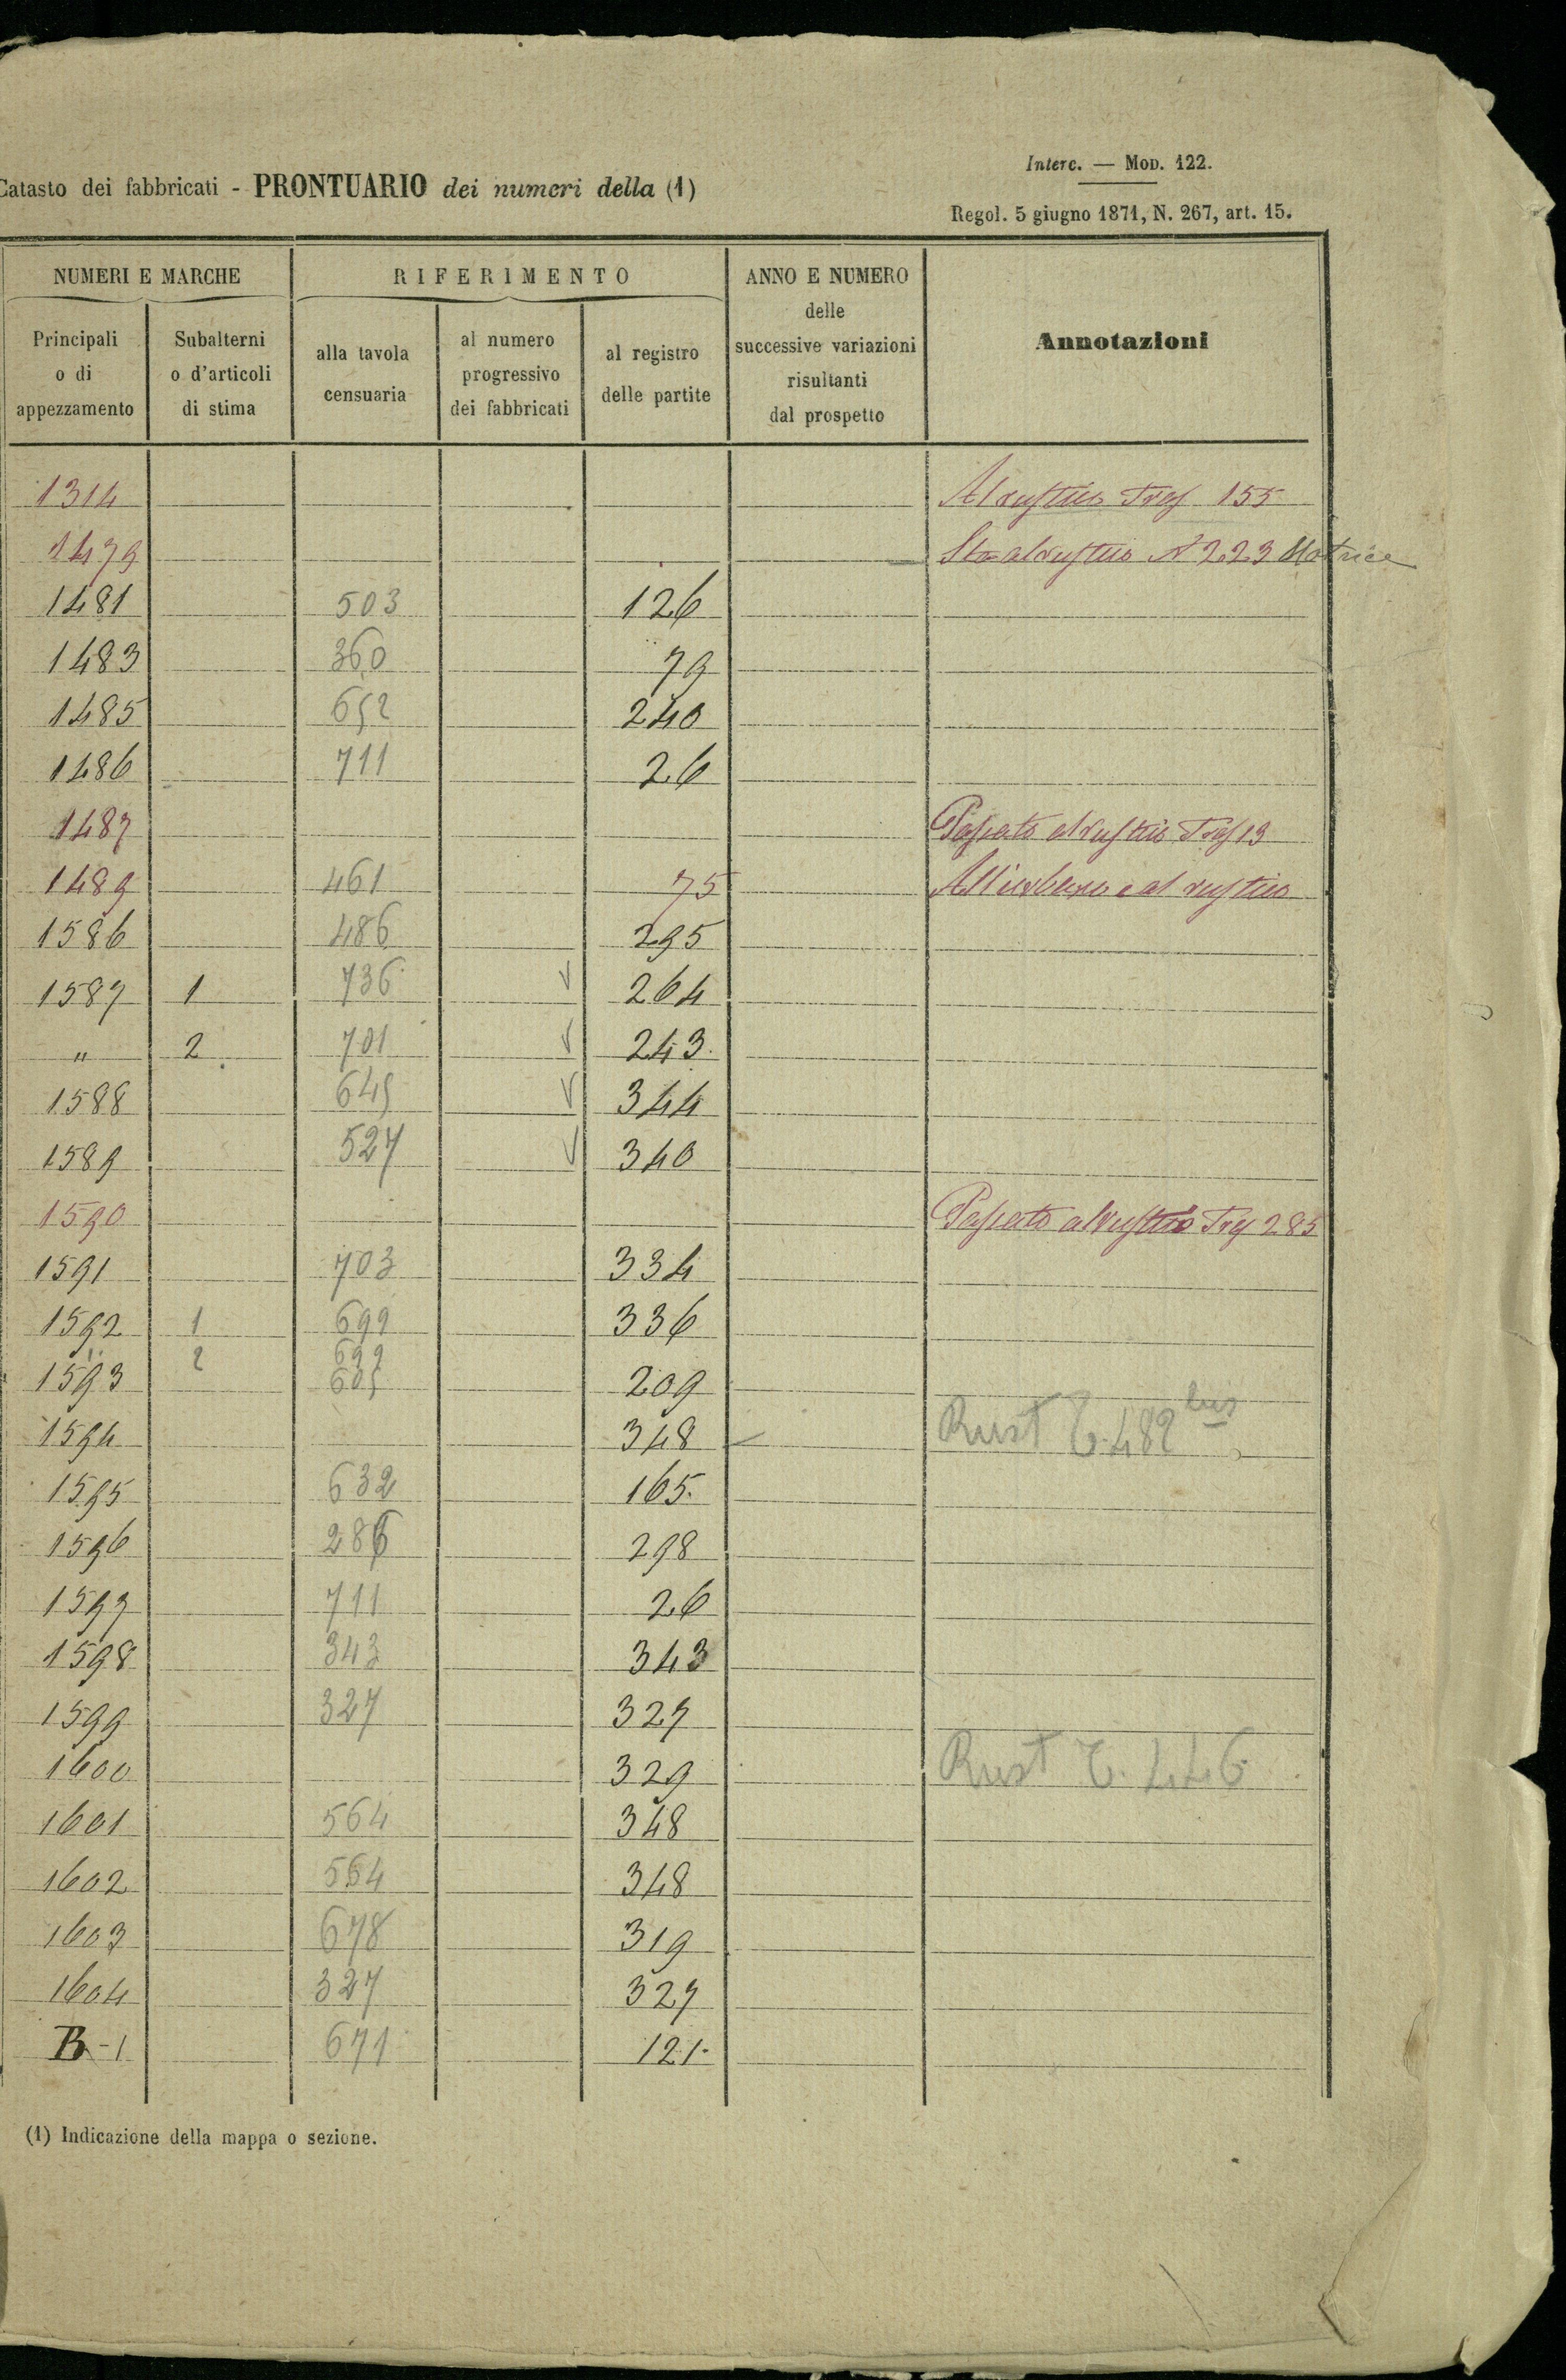 Interc. — Mod. 122.
Catasto dei fabbricati - PRONTUARIO dei numeri della (1)
Regol. 5 giugno 1871, N. 267, art. 15.
NUMERI E MARCHE RIFERIMENTO ANNO E NUMERO delle successive variazioni risultanti dal prospetto Annotazioni
Principali o di appezzamento Subalterni o d'articoli di stima alla tavola censuaria al numero progressivo dei fabbricati al registro delle partite
1314 Al rustico 155
1479 Sta al rustico N 223 Matrice
1481 503 126
1483 360 79
1485 652 240
1486 711 26
1487 Passato al rustico 13
1489 461 75 All'urbano e al rustico
1586 486 295
1587 1 736 √ 264
" 2 701 √ 243
1588 645 √ 344
1589 527 √ 340
1590 Passato al rustico 285
1591 703 334
1592 1 699 336
" 2 699
1593 605 209
1594 348 Rust T. 482 bis
1595 632 165
1596 286 298
1597 711 26
1598 343 343
1599 327 327
1600 329 Rust T. 446
1601 564 348
1602 564 348
1603 678 319
1604 327 327
B-1 671 121
(1) Indicazione della mappa o sezione.